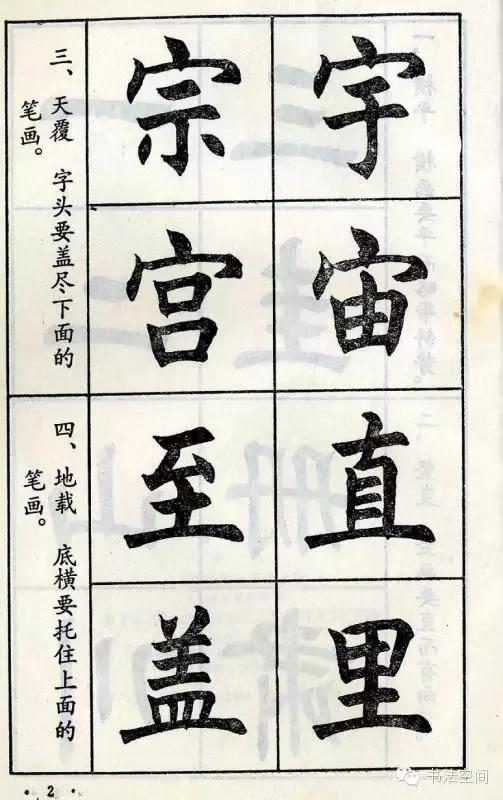 三、天覆 字头要盖尽下面的
笔画。
宇宙
宗宫
四、地载 底横要托住上面的
笔画。
直里
至盖
·2·
书法空间